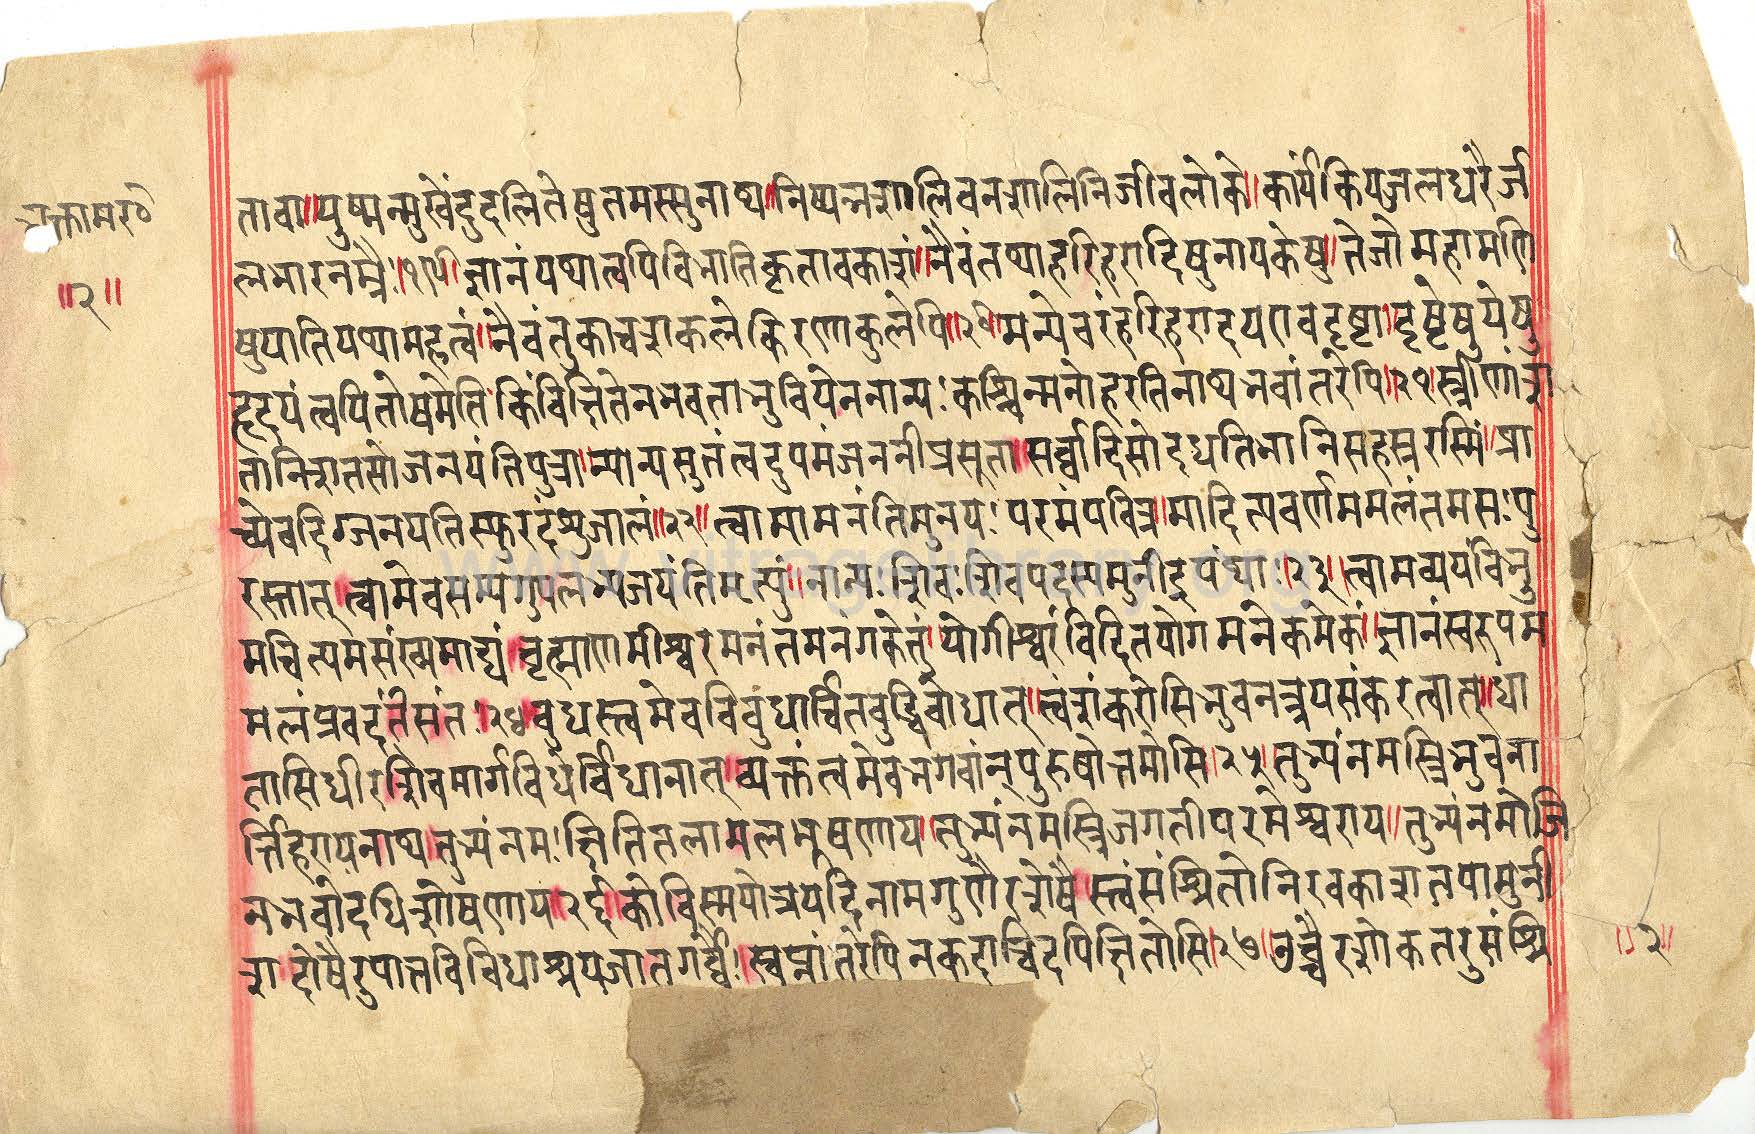 भक्तामर०
॥२॥
तावा॥युष्मन्मुखेंदुदलितेषुतमस्सुनाथ॥निष्पन्नशालिवनशालिनिजीवलोके॥कार्यंकियज्जलधरैर्ज
लभारनम्रैः॥१९॥ज्ञानंयथात्वयिविभातिकृतावकाशं॥नैवंतथाहरिहरादिषुनायकेषु॥तेजोमहामणि
षुयातियथामहत्वं॥नैवंतुकाचशकलेकिरणाकुलेपि॥२०॥मन्येवरंहरिहरादयएवदृष्टा॥दृष्टेषुयेषु
हृदयंत्वयितोषमेति॥किंवीक्षितेनभवताभुवियेननान्यः॥कश्चिन्मनोहरतिनाथभवांतरेपि॥२१॥स्त्रीणांश
तानिशतसोजनयंतिपुत्रा॥न्नान्यसुतंत्वदुपमंजननीप्रसूता॥सर्वादिसोदधतिभानिसहस्ररस्मिं॥प्रा
च्येवदिग्जनयतिस्फुरदंश्रुजालं॥२२॥त्वामामनंतिमुनयः॥परमंपवित्र॥मादित्यवर्णममलंतमसः॥पु
रस्तात्॥त्वामेवसम्यगुपलभ्यजयंतिमृत्युं॥नान्यःशिवःशिवपदस्यमुनींद्रपंथाः॥२३॥त्वामव्ययंविभु
मचिंत्यमसंख्यमाद्यं॥ब्रह्माणमीश्वरमनंतमनंगकेतुं॥योगीश्वरंविदितयोगमनेकमेकं॥ज्ञानंस्वरूपम
मलंप्रवदंतिसंतः॥२४॥बुधस्त्वमेवविबुधार्चितबुद्धिबोधात्॥त्वंशंकरोसिभुवनत्रयसंकरत्वात्॥धा
तासिधीरशिवमार्गविधेर्विधानात्॥व्यक्तंत्वमेवभगवन्पुरुषोत्तमोसि॥२५॥तुभ्यंनमस्त्रिभुवना
र्त्तिहरायनाथ॥तुभ्यंनमःक्षितितलामलभूषणाय॥तुभ्यंनमस्त्रिजगतीपरमेश्वराय॥तुभ्यंनमोजि
नभवोदधिशोषणाय॥२६॥कोविस्मयोत्रयदिनामगुणैरशेषै॥स्त्वंसंश्रितोनिरवकाशतयामुनी
श॥दोषैरुपात्तविविधाश्रयजातगर्वैः॥स्वप्नांतरेपिनकदाचिदपीक्षितोसि॥२७॥उच्चैरशोकतरुसंश्रि
॥२॥